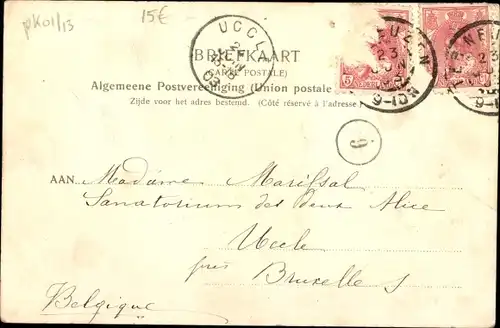 pk01/13
15€
UCCL
BRIEFKAART
(CARTE POSTALE)
Algemeene Postvereeniging (Union postale
Zijde voor het adres bestemd. (Côté réservé à l'adresse)
NEUZEN
23
9-10N
5
9
AAN Madame Mariffal
Sanatorium des deux Alice
Uccle
près Bruxelles
Belgique